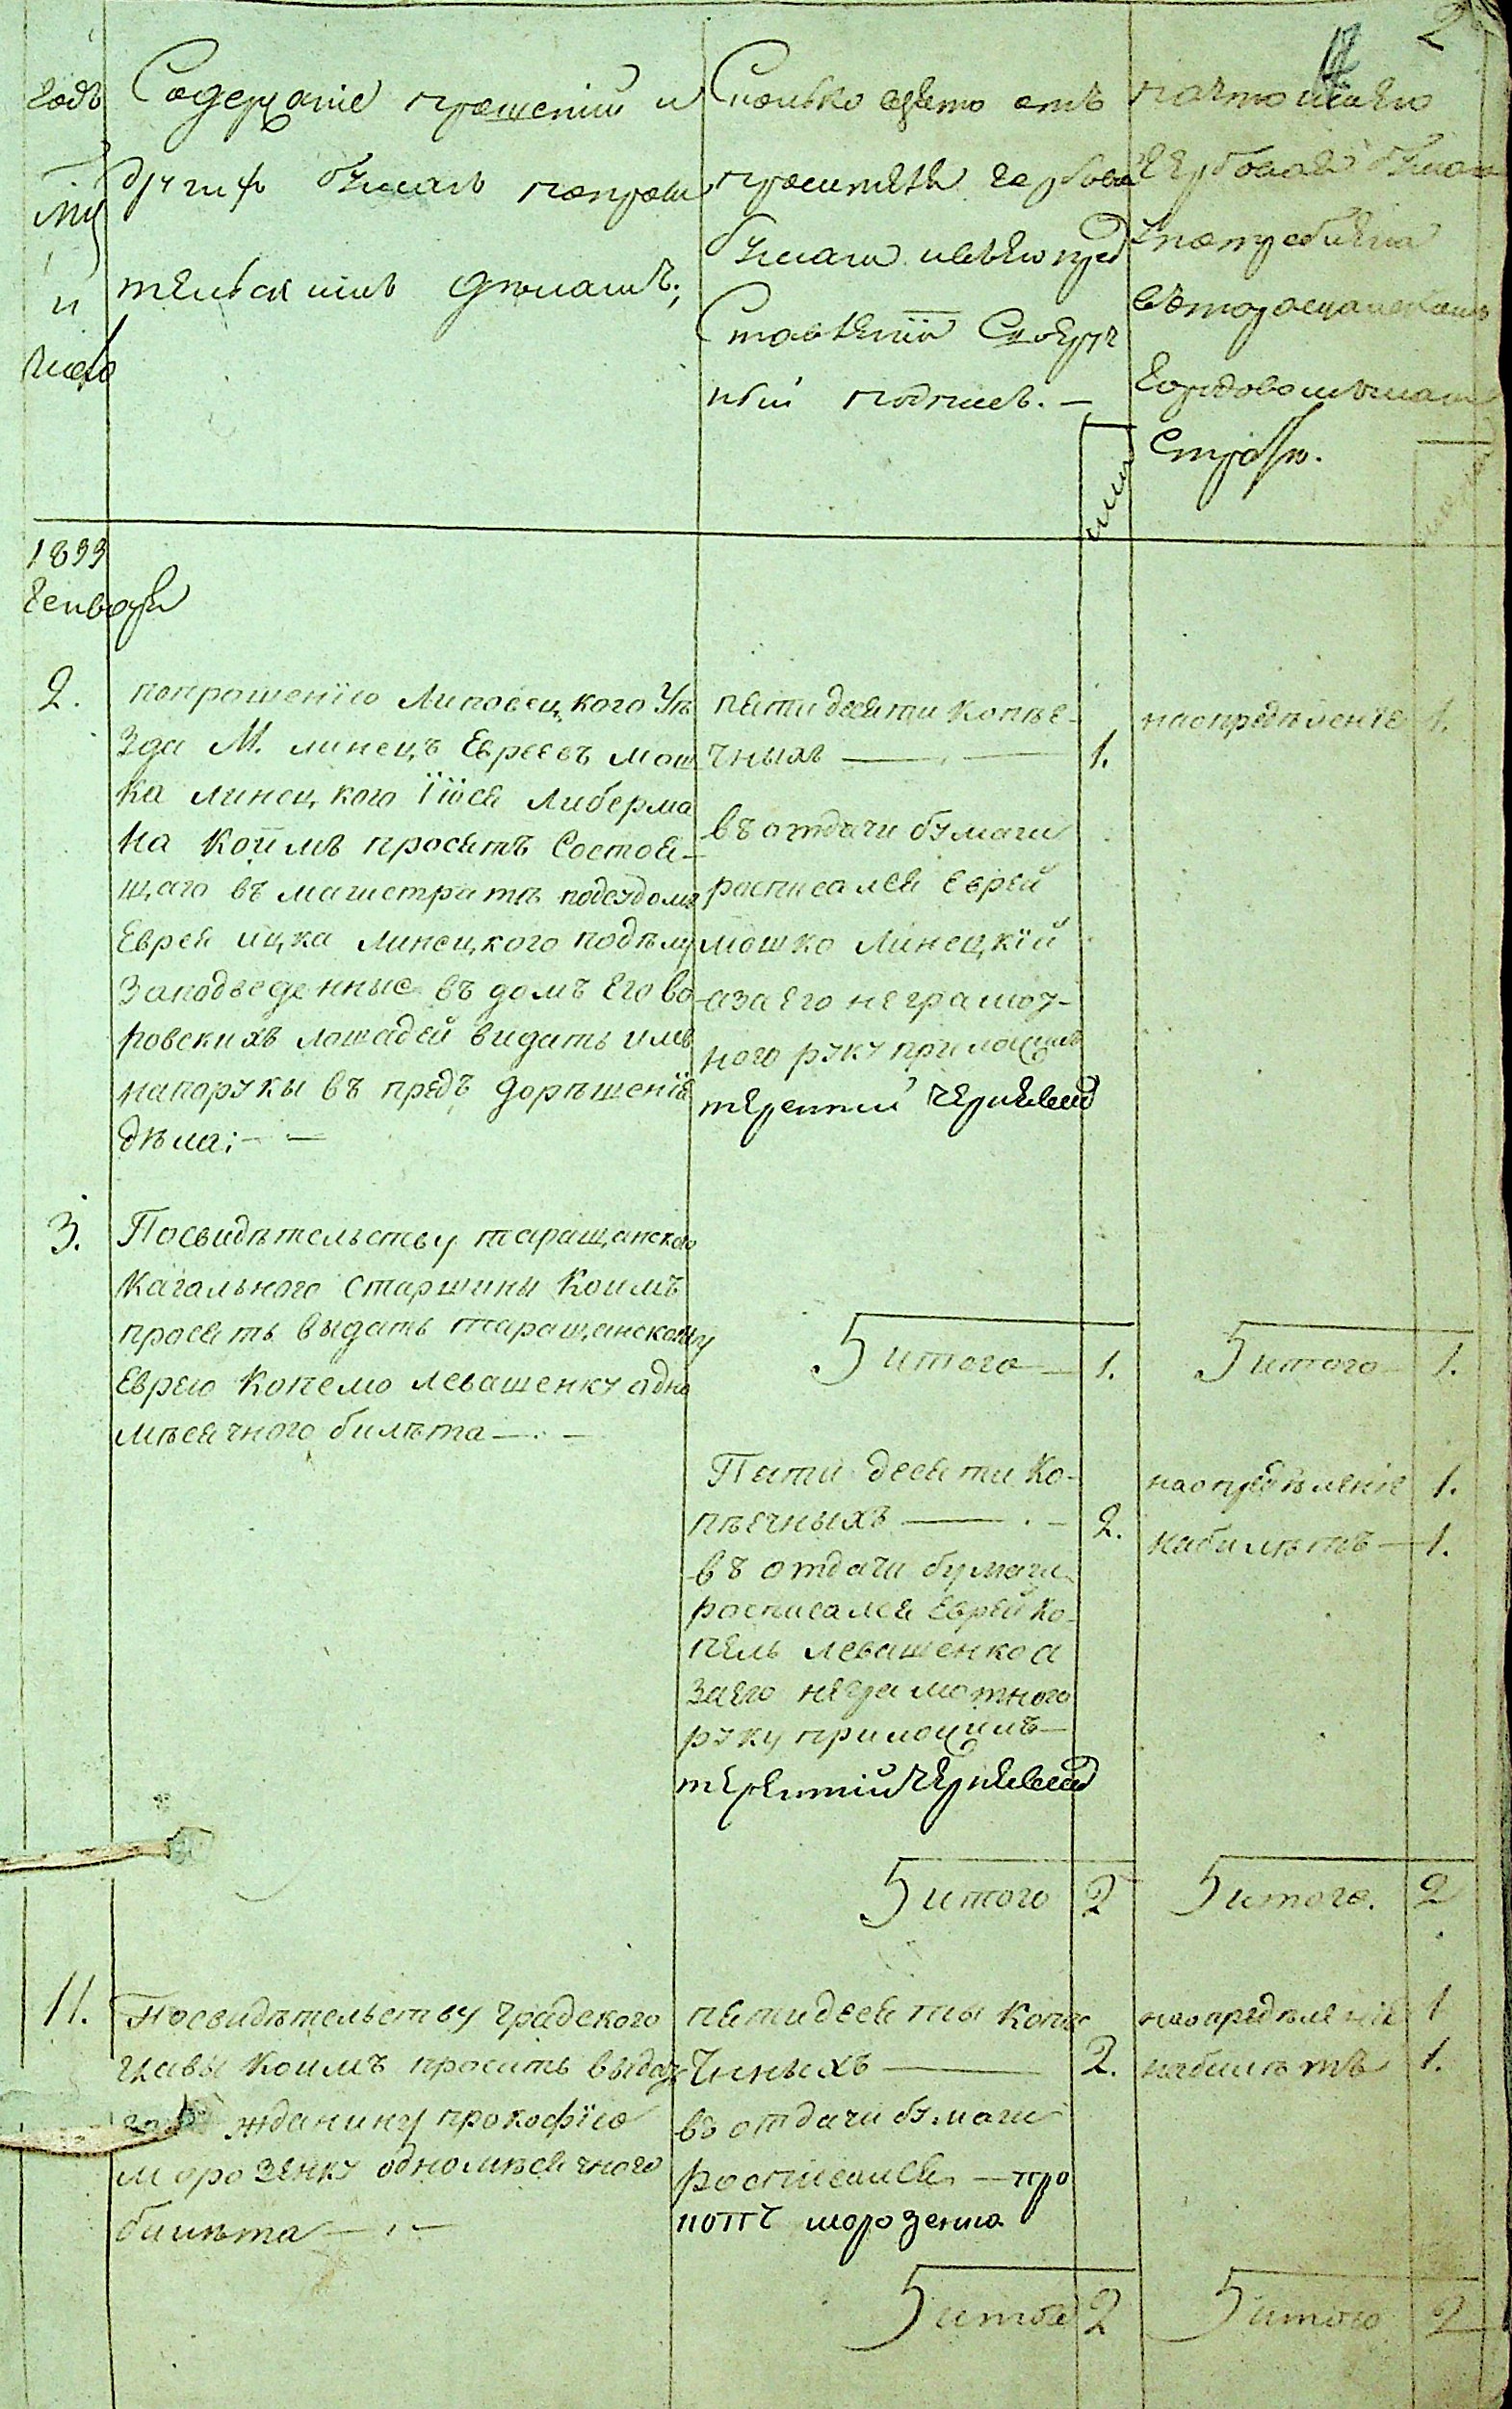 2
годъ
мц
и
число
Содержаніе прошеній и
других бумагъ попроси
тельскимъ деламъ;
Сколько взято отъ
просителя гербовой
бумаги
ставленія
ный подписъ. —
гербовая бумага
употреблена
стряпч.
1833
Генваря
2.
попрошенїю Липовецкого Уѣ
зда М. линецъ Евреевъ мош
ка линецкого Іїося либерма
на коимъ просятъ Состоя-
щаго въ магистратѣ подсудомъ
Еврея ицка линецкого подѣлу
Заподведенные въ домъ Его во
ровскихъ лошадей видать имъ
напоруки въ предъ дорѣшенїя
дѣла; — —
пятидесяти копѣе-
чныхъ — 1.
въ отдачи бумаги
росписался Еврей
мошко линецкїй
азаего неграмот-
ного руку приложилъ
терентий чернявский
наопредѣленїе 1.
3.
Посвидѣтельству таращанского
кагального Старшины Коимъ
просятъ выдать таращанскому
Еврею Копелю левашенку одно
мѣсячного билѣта — . —
итого — 1.
итого — 1.
Пяти десяти ко-
пѣечныхъ — . — 2.
въ отдачи бумаги
росписался Еврей Ко-
пель левашенко а
заего неграмотного
руку приложилъ —
терентїй чернявский
наопредѣленїе 1.
набилѣтъ — 1.
итого 2
итого. 2
11.
Посвидѣтельству градского
главы коимъ проситъ выдать
жданину прокофїю
морозенку одномѣсячного
билѣта — . —
пятидесяты копѣ
чнныхъ — 2.
во отдачи бумаги
росписался — про
морозенко
наопредѣленїе 1
набилѣтъ 1.
итого 2
итого 2